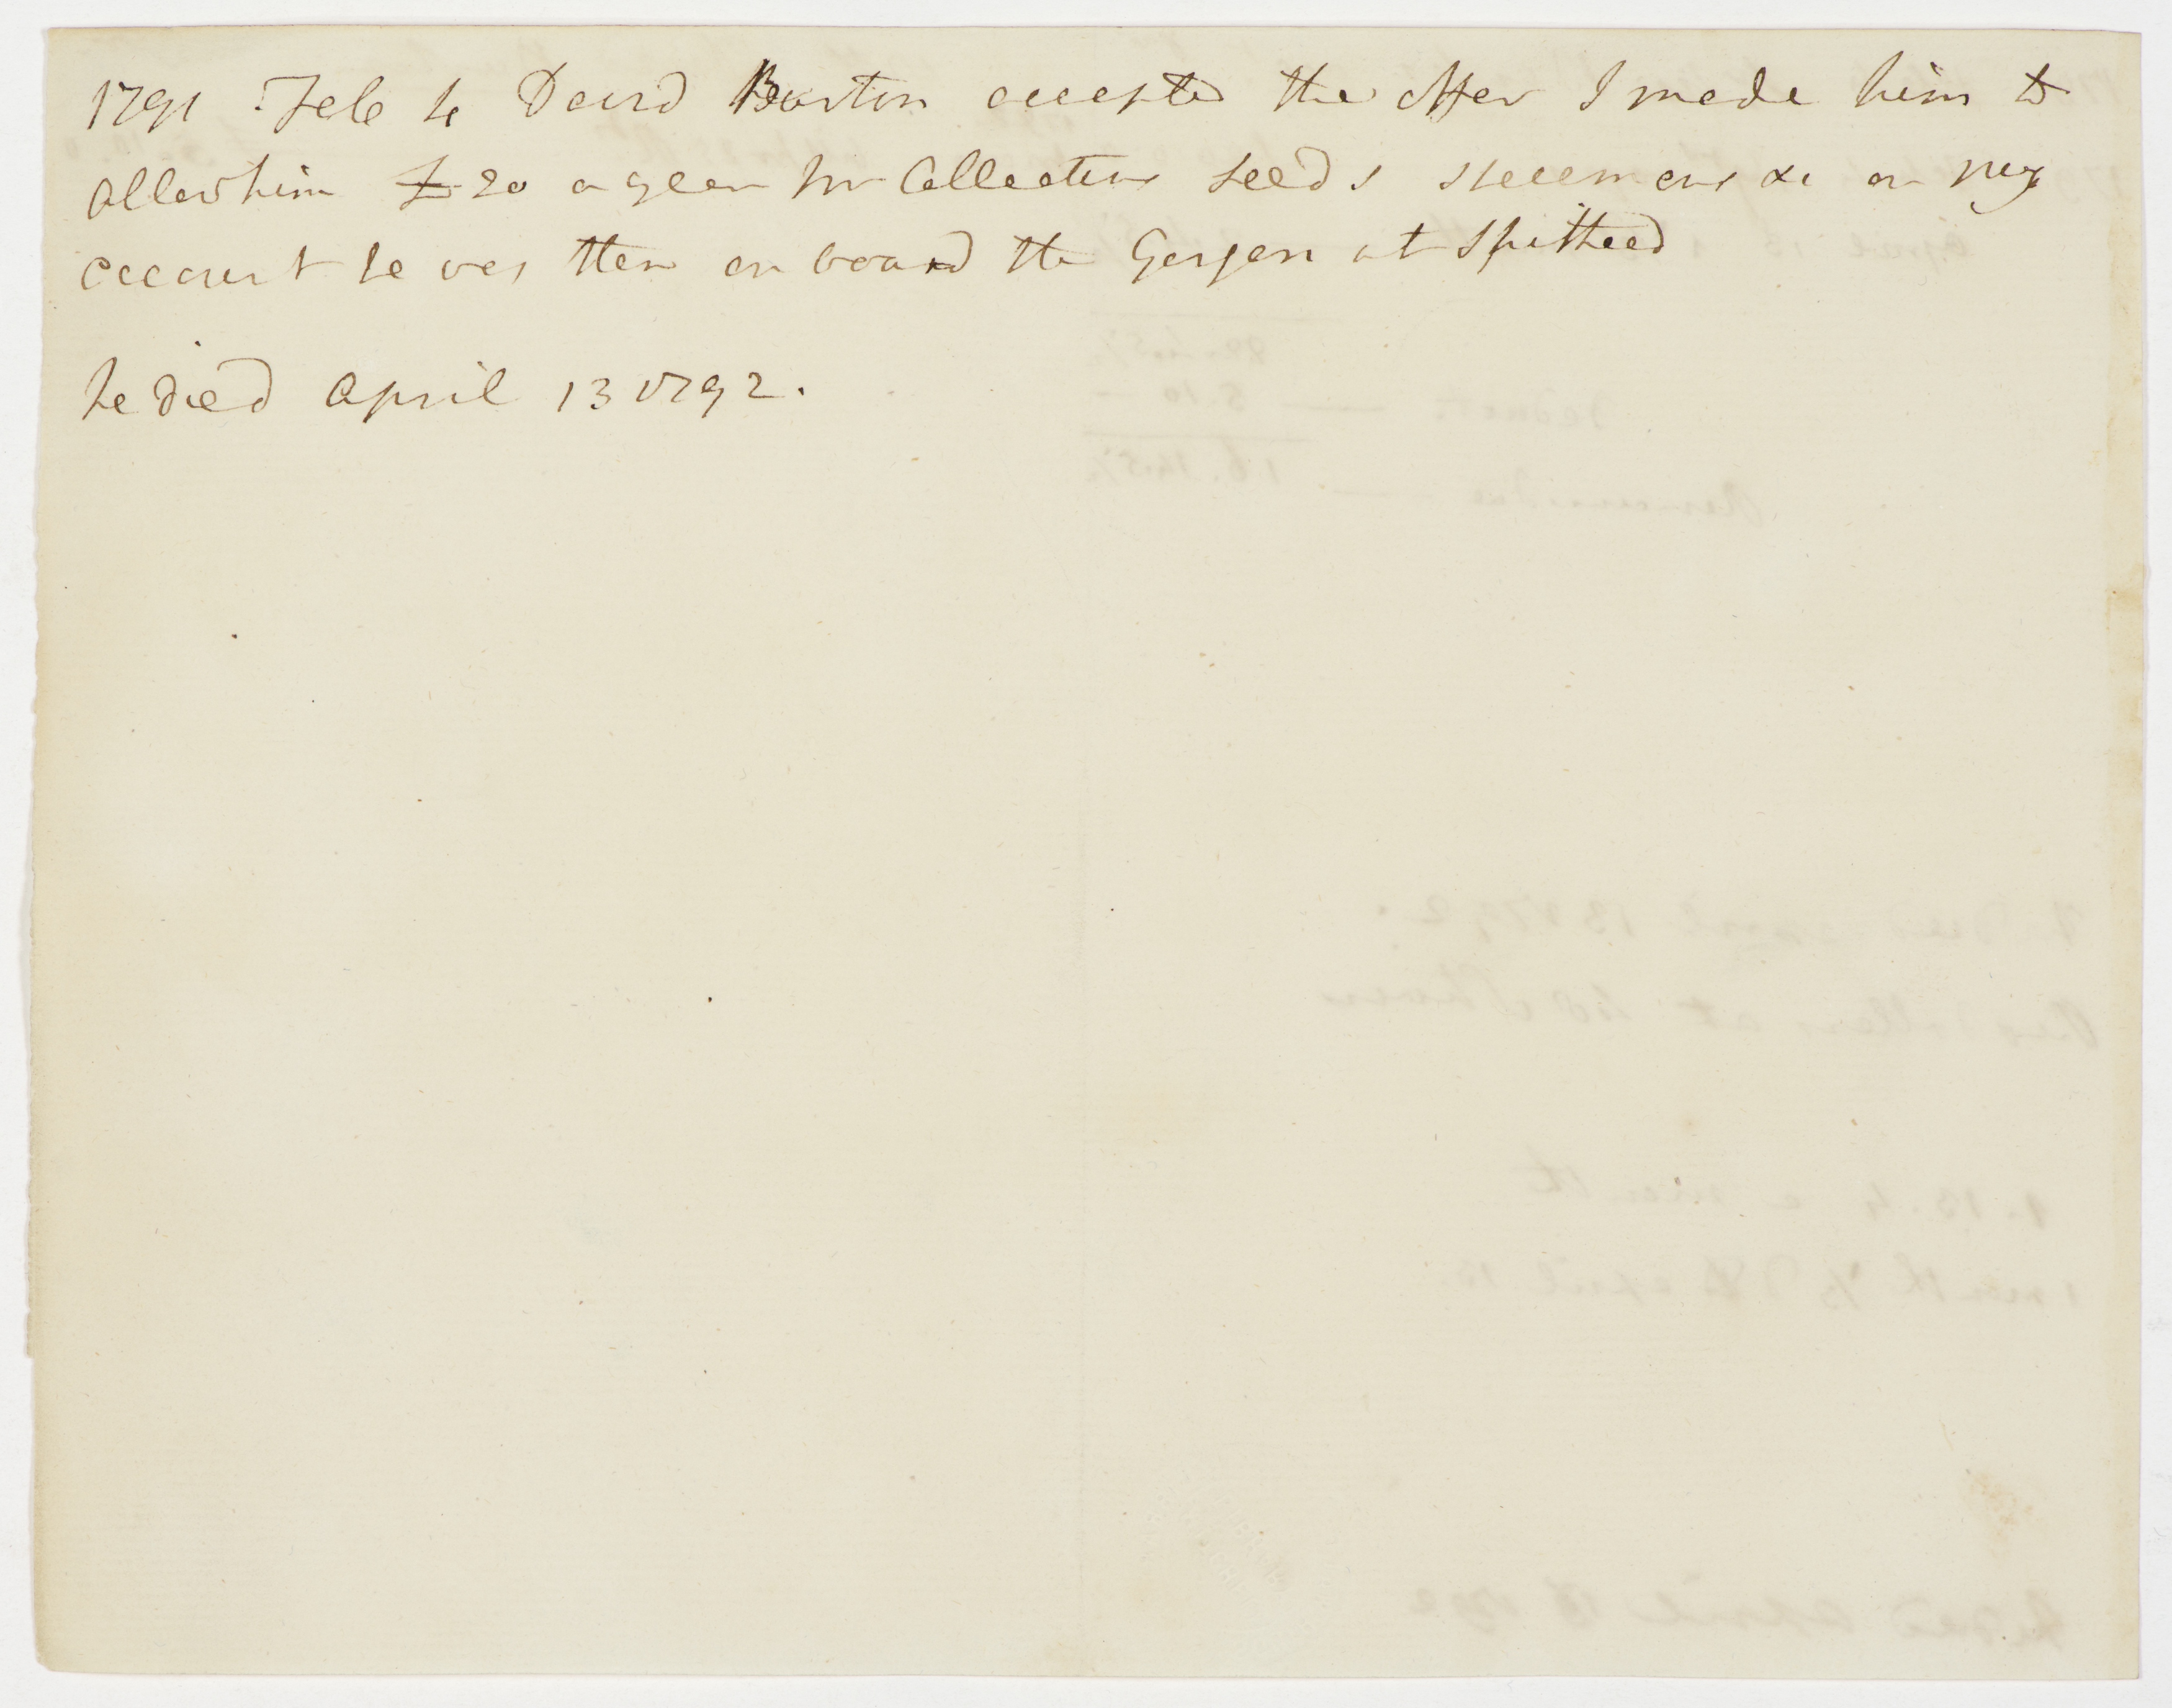 1791 Feb 4 David Burton accepted the offer I made him to
allow him £20 a year for Collecting seeds specimens &c on my
account he was then on board the Gorgon at Spithead
he died April 13 1792.